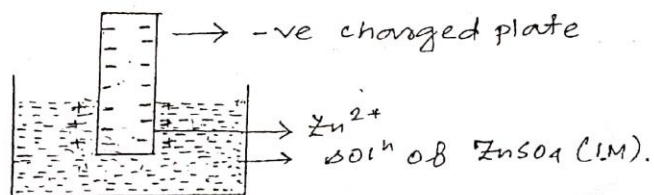 -ve charged plate
Zn²⁺
solⁿ of ZnSO4 (1M).